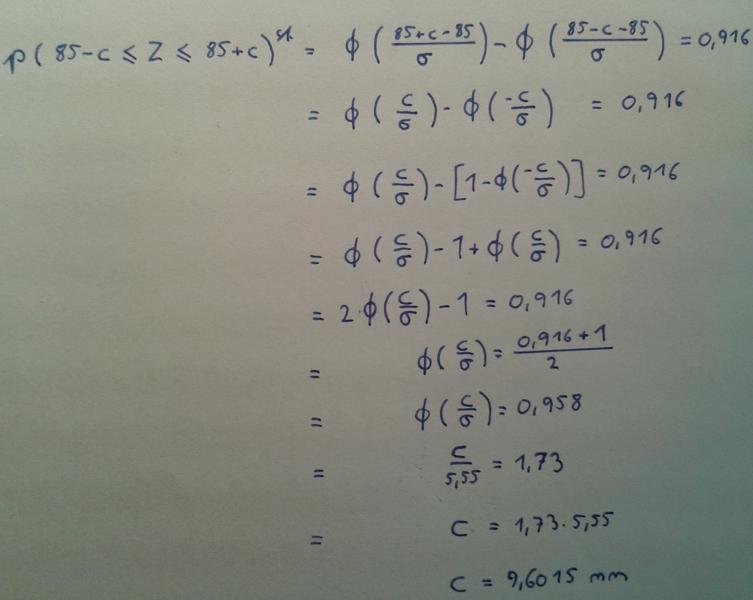 p(85-c ≤ Z ≤ 85+c)^st. = ϕ((85+c-85)/σ) - ϕ((85-c-85)/σ) = 0,916
= ϕ(c/σ) - ϕ(-c/σ) = 0,916
= ϕ(c/σ) - [1-ϕ(-c/σ)] = 0,916
= ϕ(c/σ) - 1 + ϕ(c/σ) = 0,916
= 2·ϕ(c/σ) - 1 = 0,916
= ϕ(c/σ) = (0,916+1)/2
= ϕ(c/σ) = 0,958
= c/5,55 = 1,73
= c = 1,73·5,55
c = 9,6015 mm